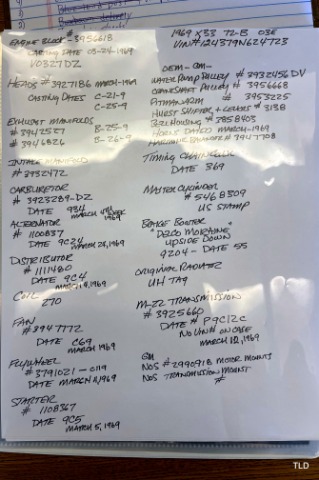 ENGINE BLOCK # 3956618
CASTING DATE 03-24-1969
V0327DZ
HEADS # 3927186 MARCH-1969
CASTING DATES C-21-9
C-25-9
EXHAUST MANIFOLDS
# 3942527 B-25-9
# 3946826 B-26-9
INTAKE MANIFOLD
# 3932472
CARBURETOR
# 3923289-DZ
DATE 934 MARCH 4TH WEEK 1969
ALTERNATOR
# 1100837
DATE 9C24 MARCH 24, 1969
DISTRIBUTOR
# 1111480
DATE 9C4
MARCH 4, 1969
COIL
270
FAN
# 3947772
DATE C69
MARCH 1969
FLYWHEEL
# 3791021 - GM
DATE MARCH 11, 1969
STARTER
# 1108367
DATE 9C5
MARCH 5, 1969
1969 X33 72-B 03E
VIN# 124379N624723
OEM - GM -
WATER PUMP PULLEY # 3932456 DV
CRANKSHAFT PULLEY # 3956668
PITMAN ARM # 3953225
HURST SHIFTER + LEVERS # 3138
BELLHOUSING # 3858403
HORNS DATED MARCH-1969
HARMONIC BALANCER # 3947708
TIMING CHAIN COVER
DATE 369
MASTER CYLINDER
# 5468309
US STAMP
BRAKE BOOSTER
"DELCO MORAINE"
UPSIDE DOWN
9204 - DATE 55
ORIGINAL RADIATOR
UH TAG
M-22 TRANSMISSION
# 3925660
DATE # P9C12C
NO VIN# ON CASE
MARCH 12, 1969
GM
NOS # 2990918 MOTOR MOUNTS
NOS TRANSMISSION MOUNT
#
TLD